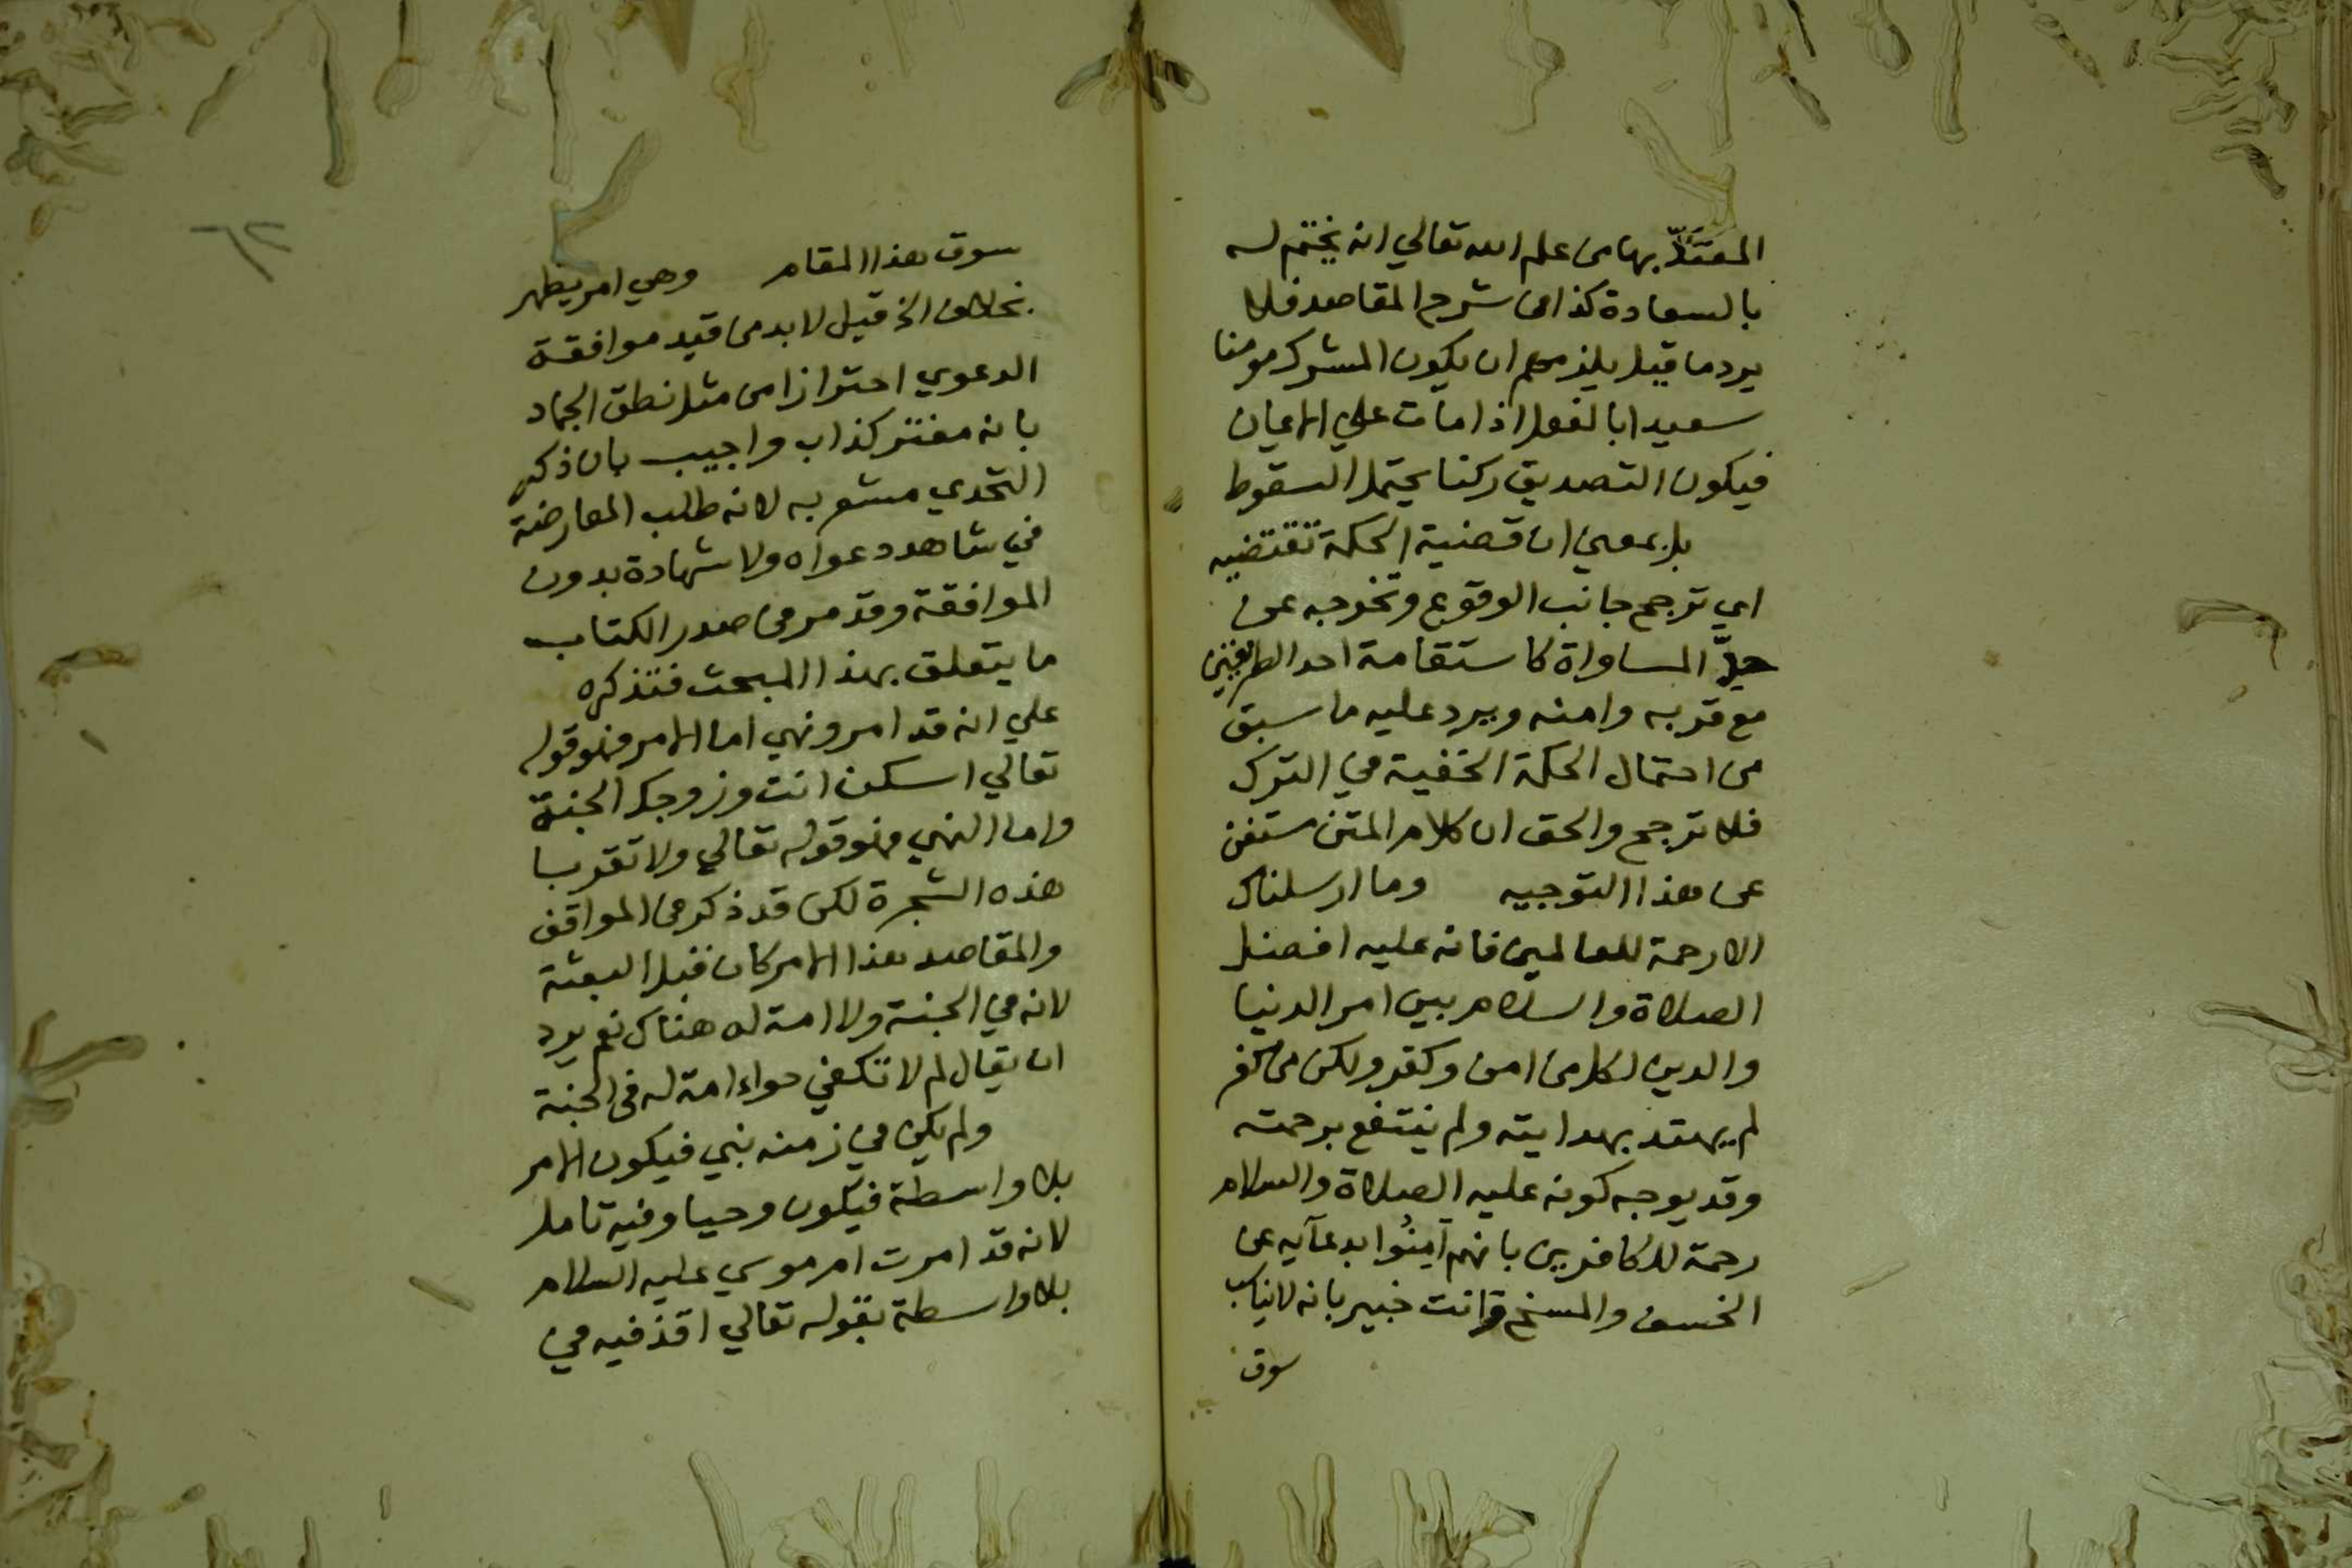 المعتدّ بها من علم الله تعالي انه يختم له
بالسعادة كذا في شرح المقاصد فلا
يرد ما قيل يلزم ان يكون المشرك مومنا
سعيدا بالفعل اذا مات علي الايمان
فيكون التصديق ركنا يحتمل السقوط
بل بمعني ان قضية الحكمة تقتضيه
اي ترجح جانب الوقوع وتخرجه عن
حدّ المساواة كاستقامة احد الطريقين
مع قربه وامنه ويرد عليه ما سبق
من احتمال الحكمة الخفية في الترك
فلا ترجح والحق ان كلام المتن مستغن
عن هذا التوجيه وما ارسلناك
الا رحمة للعالمين فانه عليه افضل
الصلاة والسلام بين امر الدنيا
والدين لكل من امن وكفر ولكن من كفر
لم يهتد بهدايته ولم ينتفع برحمته
وقد يوجه كونه عليه الصلاة والسلام
رحمة للكافرين بانهم آمِنُوا بدعآيه عن
الخسف والمسخ وانت خبير بانه لا يناسب
سوق
سوق هذا المقام وهي امر يظهر
بخلاف الخ قيل لا بد من قيد موافقة
الدعوي احترازا من مثل نطق الجماد
بانه مفتر كذاب واجيب بان ذكر
التحدي مشعر به لانه طلب المعارضة
في شاهد دعواه ولا شهادة بدون
الموافقة وقد مر في صدر الكتاب
ما يتعلق بهذا المبحث فتذكره
علي انه قد امر ونهي اما الامر فهو قوله
تعالي اسكن انت وزوجك الجنة
واما النهي فهو قوله تعالي ولا تقربا
هذه الشجرة لكن قد ذكر في المواقف
والمقاصد هذا الامر كان قبل البعثة
لانه في الجنة ولا امة له هناك نعم يرد
ان يقال لم لا تكفي حواء امة له في الجنة
ولم يكن في زمنه نبي فيكون الامر
بلا واسطة فيكون وحيا وفيه تامل
لانه قد امرت ام موسي عليه السلام
بلا واسطة بقوله تعالي اقذفيه في